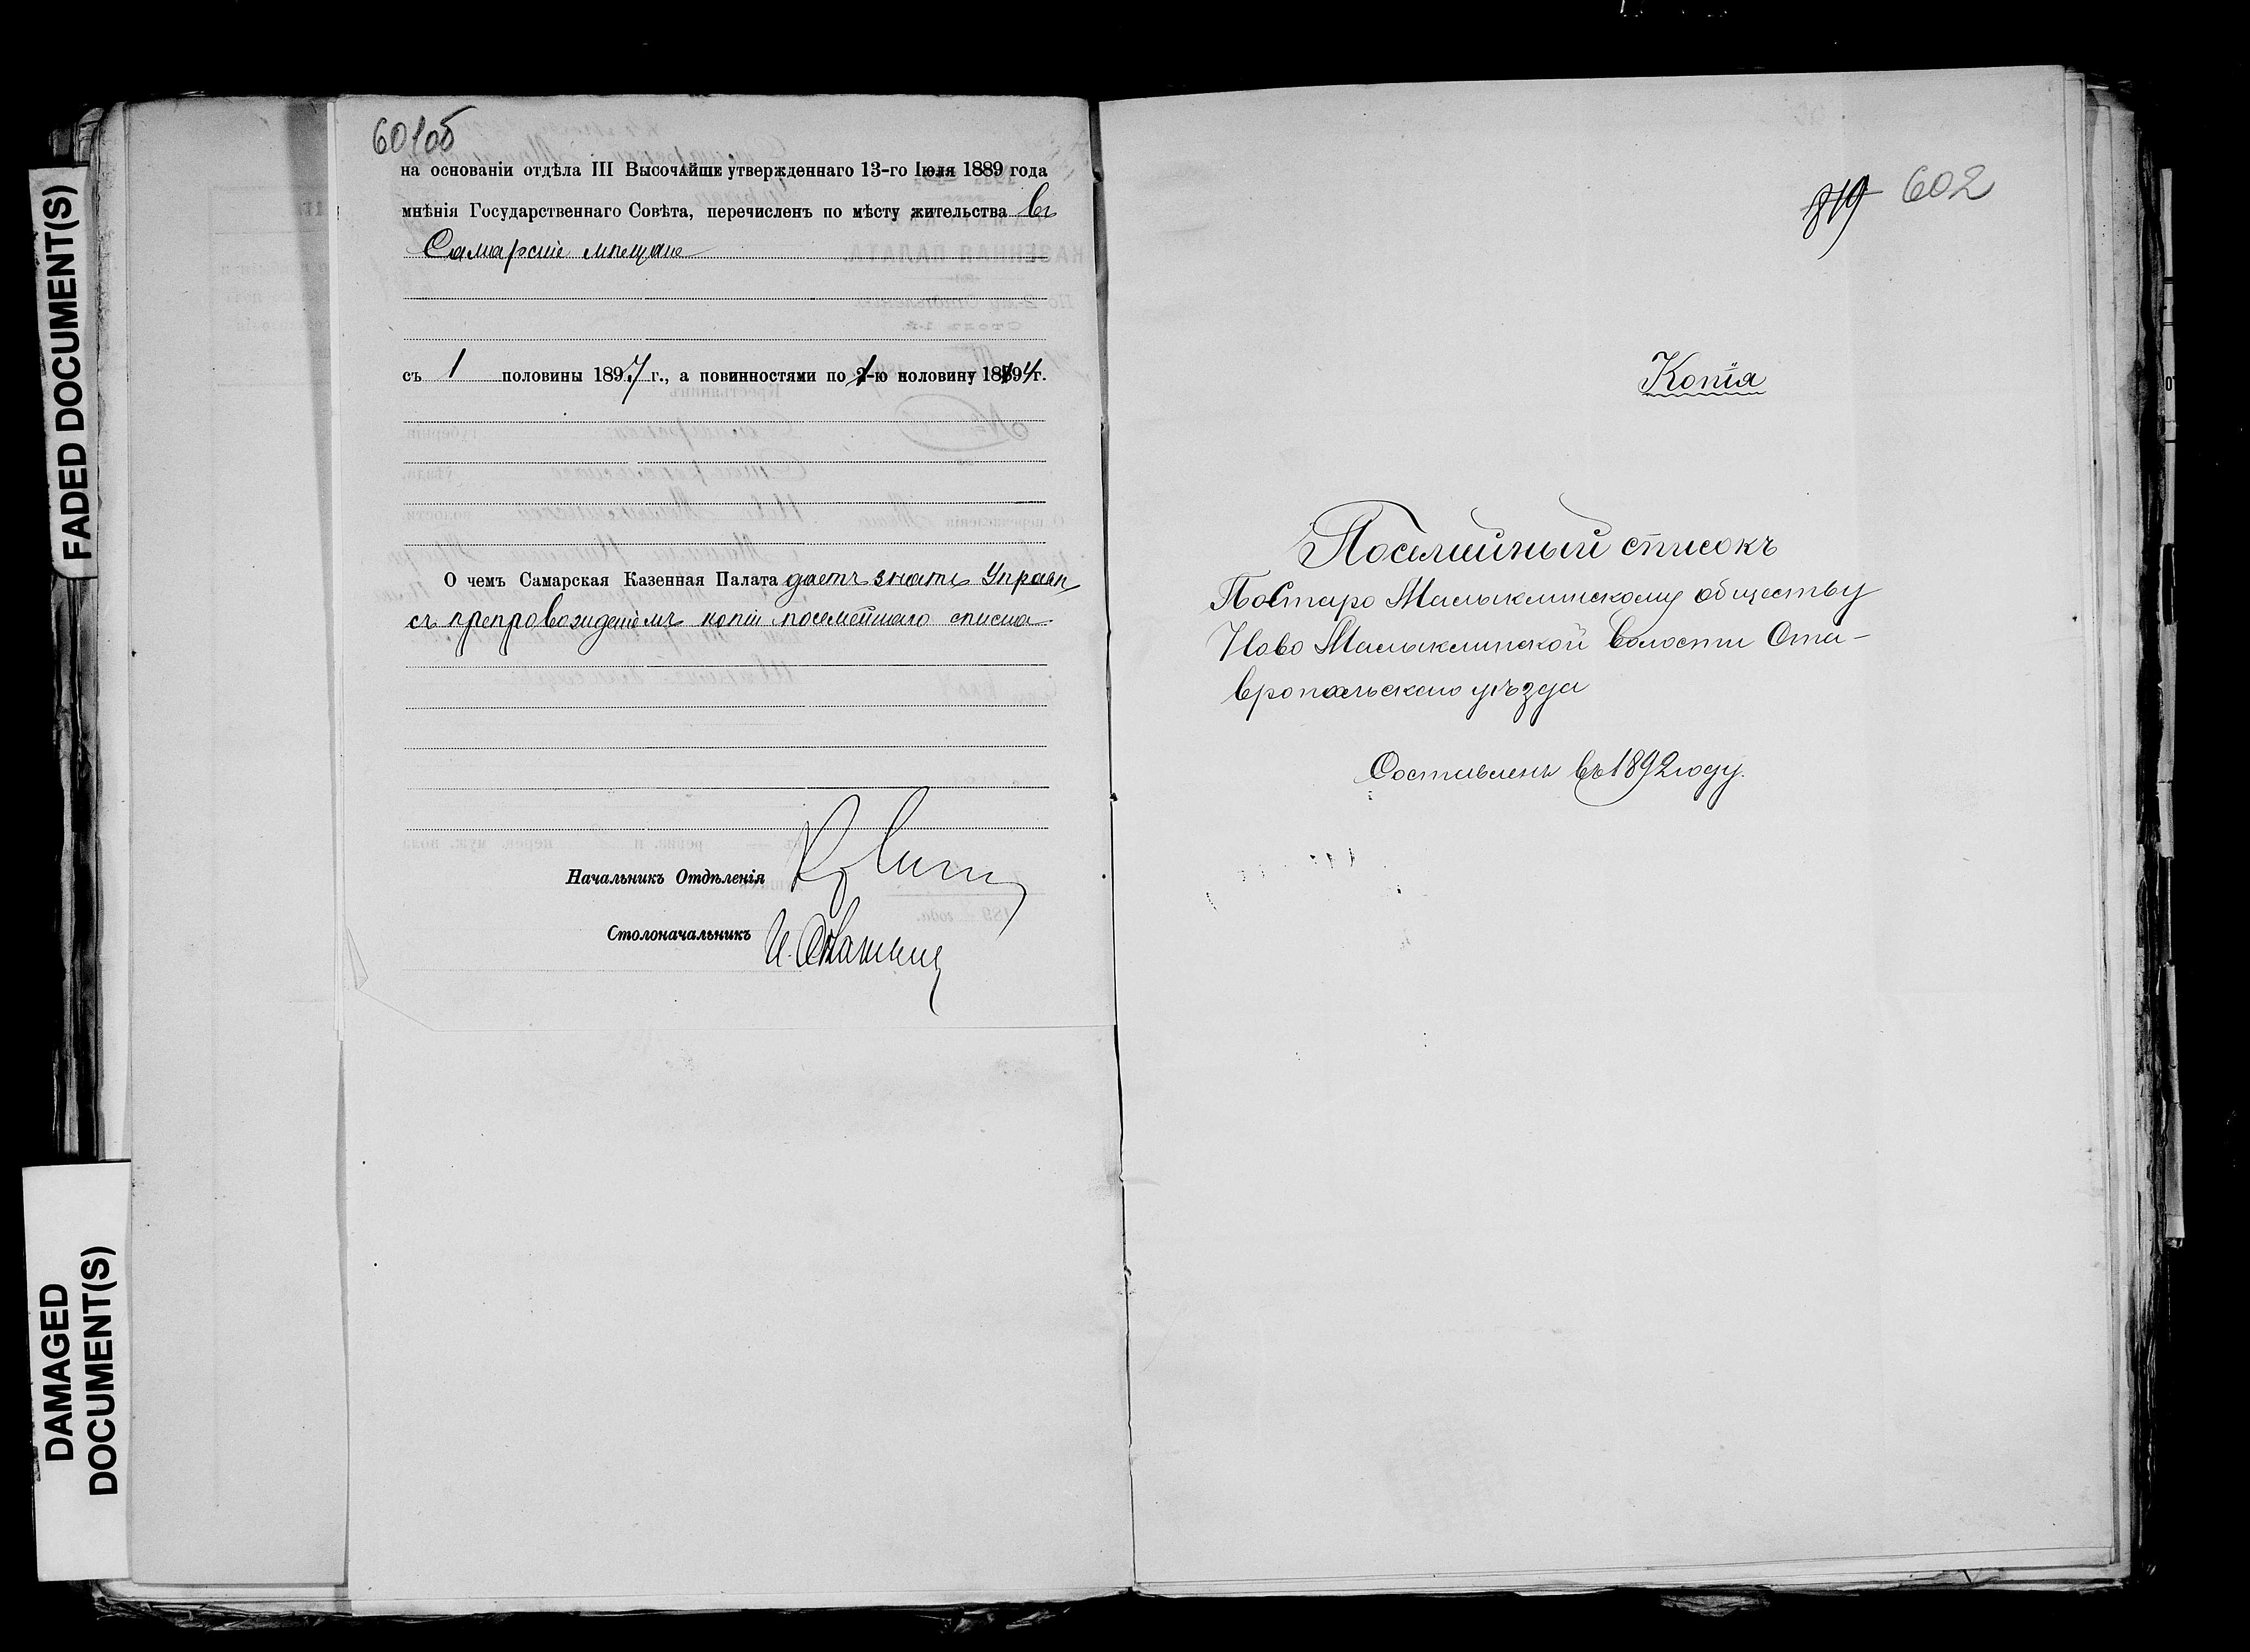 FADED DOCUMENT(S)
DAMAGED DOCUMENT(S)
601об
на основаніи отдѣла III Высочайше утвержденнаго 13-го Іюля 1889 года
мнѣнія Государственнаго Совѣта, перечисленъ по мѣсту жительства въ
Самарскіе мѣщане
съ 1 половины 1897 г., а повинностями по 1-ю половину 1894 г.
О чемъ Самарская Казенная Палата даетъ знать Управѣ
съ препровожденіемъ копіи посемейнаго списка.
Начальникъ Отдѣленія
Столоначальникъ И.
819 602
Копія
Посемейный списокъ
По Старо Малыклинскому обществу
Ново Малыклинской волости Ста-
вропольскаго уѣзда
Составленъ въ 1892 году.